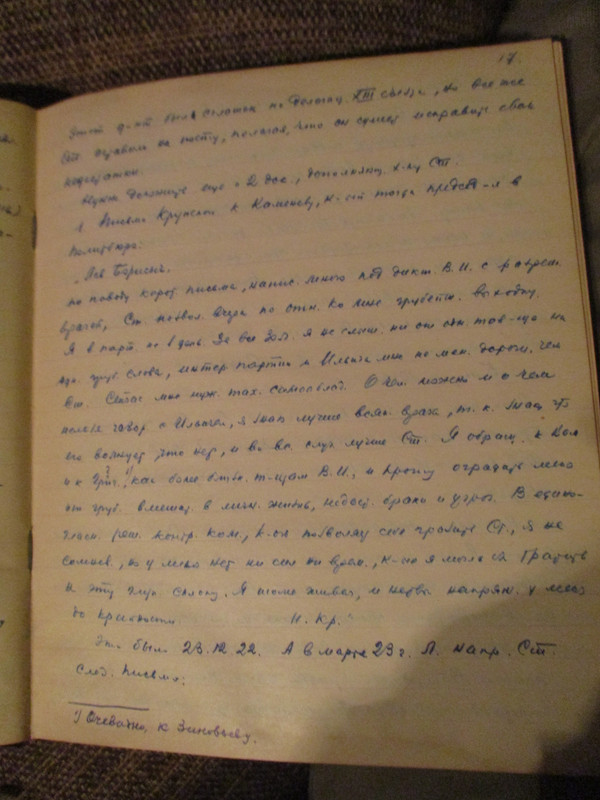 17.
Этот д-нт был оглашен по делегац. XIII съезда, но все же
Ст. оставили на посту, полагая, что он сумеет исправить свои
недостатки.
Нужно доложить еще о 2 док., дополняющ. х-ку Ст.
1. Письмо Крупской к Каменеву, к-ый тогда председ-л в
Политбюро:
„Лев Борисыч,
по поводу корот. письма, напис. мною под дикт. В.И. с разреш.
врачей, Ст. позвол. вчера по отн. ко мне грубейш. выходку.
Я в парт. не 1 день. За все 30 л. я не слыш. ни от одн. тов-ща ни
одн. груб. слова, интер. партии и Ильича мне не мен. дороги, чем
Ст. Сейчас мне нуж. max. самооблад. О чем можно и о чем
нельзя говор. с Ильичем, я знаю лучше всяк. врача, т.к. знаю, что
его волнует, что нет, и во вс. случ. лучше Ст. Я обращ. к Вам
и к Григ.¹⁾, как более близк. т-щам В.И., и прошу оградить меня
от груб. вмешат. в личн. жизнь, недост. брани и угроз. В едино-
гласн. реш. контр. ком., к-ой позволяет себе грозить Ст., я не
сомнев., но у меня нет ни сил ни врем., к-ые я могла бы тратить
на эту глуп. склоку. Я тоже живая, и нервы напряж. у меня
до крайности. Н. Кр."
Это было 23.12.22. А в марте 23 г. Л. напр. Ст.
след. письмо:
1) Очевидно, к Зиновьеву.